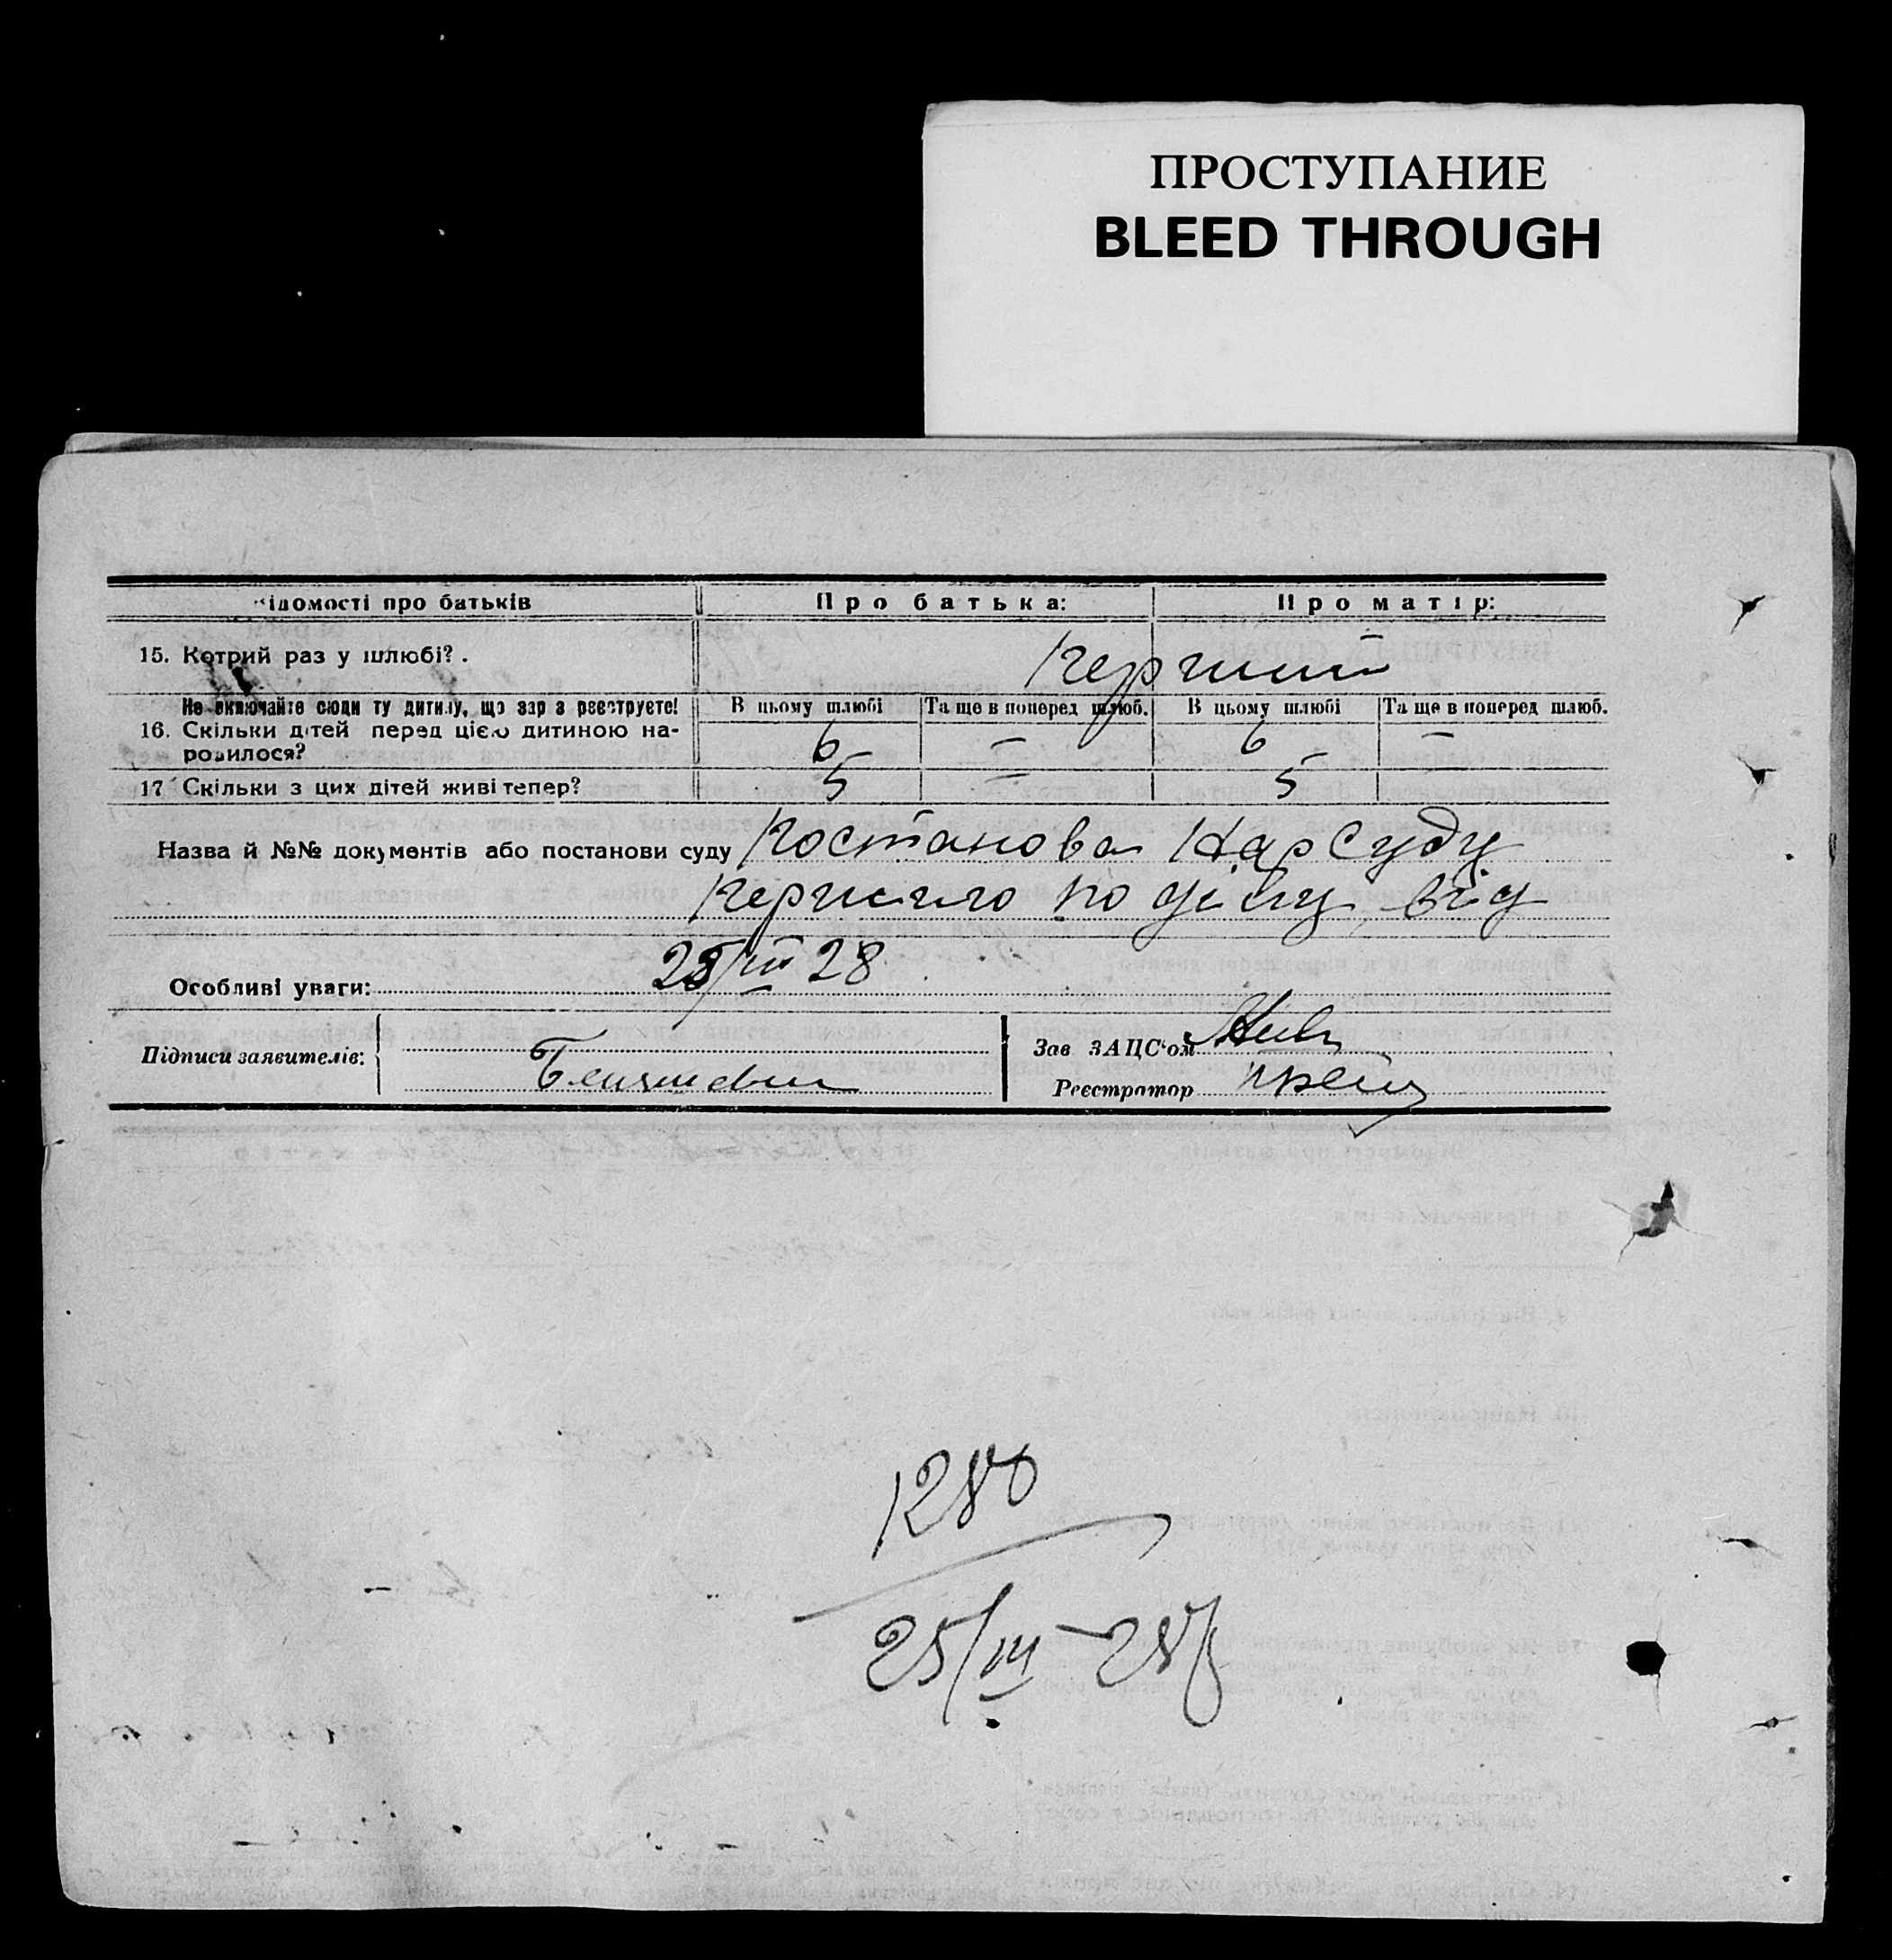 ПРОСТУПАНИЕ
BLEED THROUGH
ідомості про батьків Про батька: Про матір:
15. Котрий раз у шлюбі? . Перший
Не включайте сюди ту дитину, що зараз реєструєте! В цьому шлюбі Та ще в поперед шлюб. В цьому шлюбі Та ще в поперед шлюб.
16. Скільки дітей перед цією дитиною на- 6 — 6 —
родилося?
17 Скільки з цих дітей живі тепер? 5 — 5 —
Назва й №№ документів або постанови суду Постанова НарСуду
Першого по ділу від
25/III 28
Особливі уваги:
Підписи заявителів: Зав ЗАЦС'ом
Реєстратор
1280
25/III—28 р